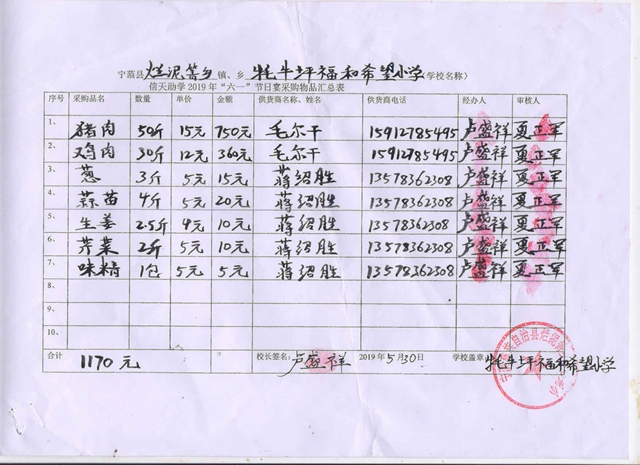 宁蒗县烂泥箐乡镇、乡牦牛坪福和希望小学学校名称）
信天助学2019年“六一”节日宴采购物品汇总表
序号 采购品名 数量 单价 金额 供货商名称、姓名 供货商电话 经办人 审核人
1、 猪肉 50斤 15元 750元 毛尔干 15912785495 卢盛祥 夏正军
2、 鸡肉 30斤 12元 360元 毛尔干 15912785495 卢盛祥 夏正军
3、 葱 3斤 5元 15元 蒋绍胜 13578362308 卢盛祥 夏正军
4、 蒜苗 4斤 5元 20元 蒋绍胜 13578362308 卢盛祥 夏正军
5、 生姜 2.5斤 4元 10元 蒋绍胜 13578362308 卢盛祥 夏正军
6、 芹菜 2斤 5元 10元 蒋绍胜 13578362308 卢盛祥 夏正军
7、 味精 1包 5元 5元 蒋绍胜 13578362308 卢盛祥 夏正军
8、
9、
10、
合计 1170元 校长签名：卢盛祥 2019年5月30日 学校盖章：牦牛坪福和希望小学